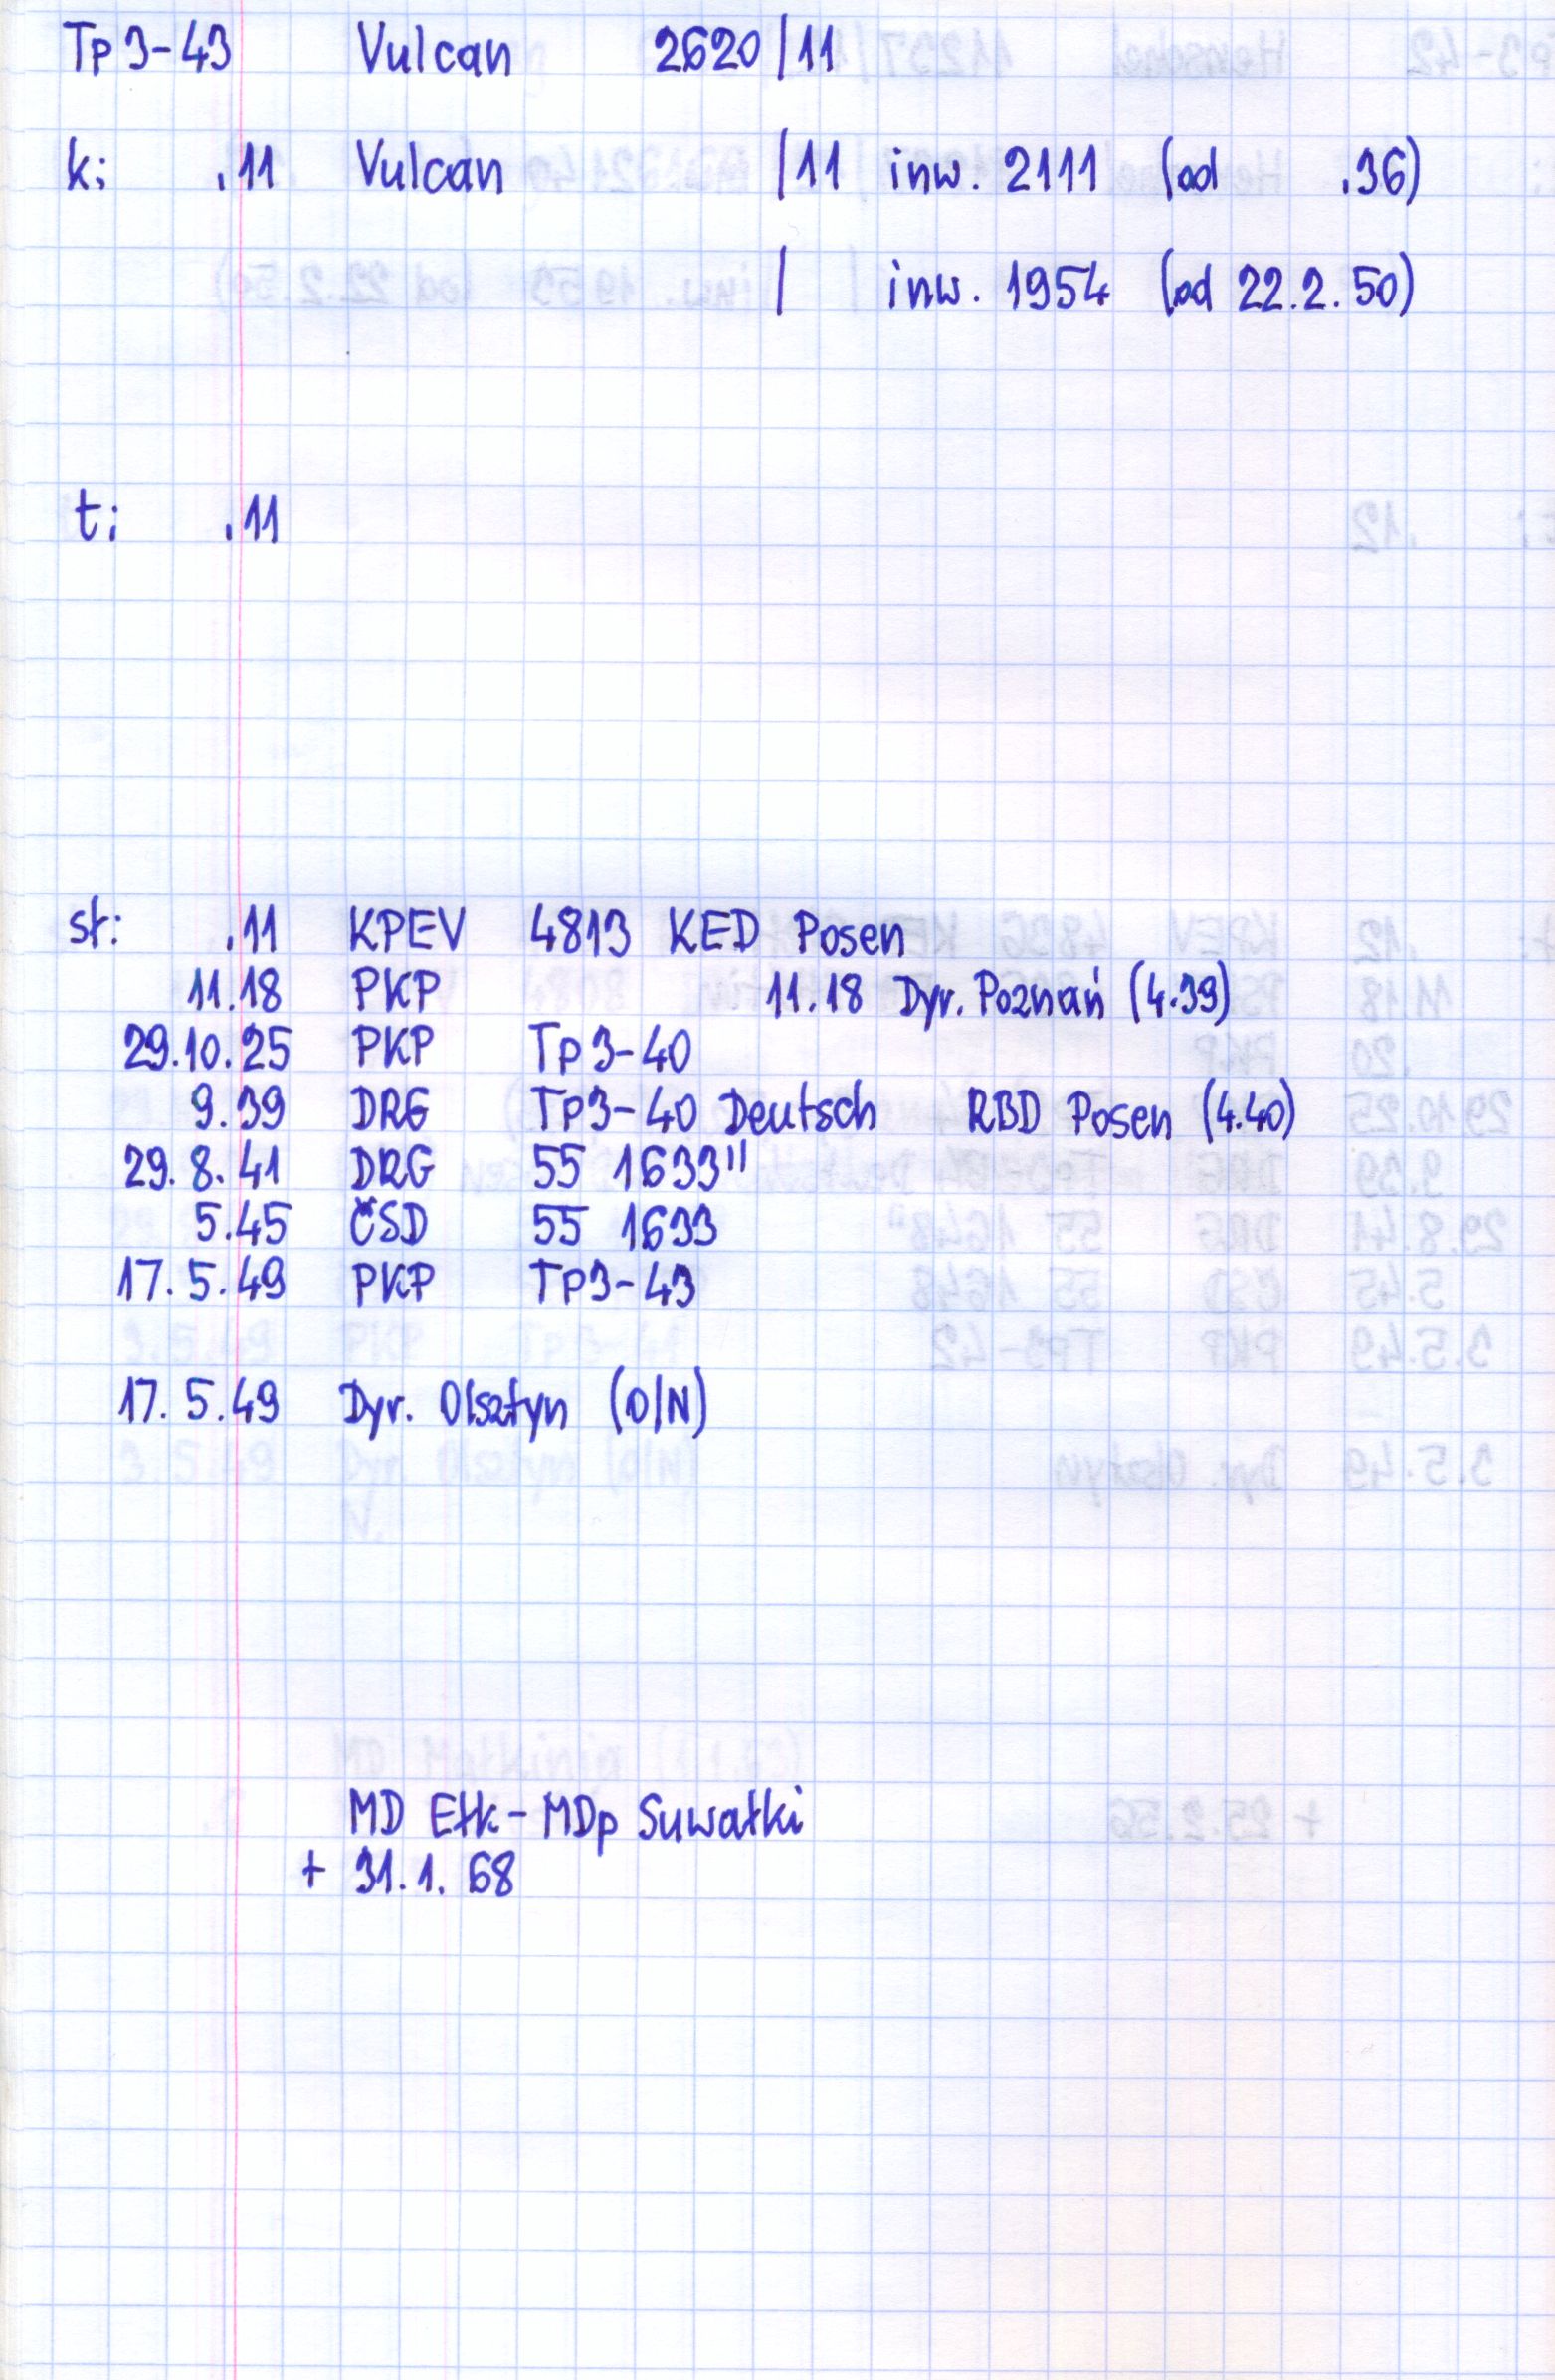 Tp3-43 Vulcan 2620/11
k: .11 Vulcan /11 inw. 2111 (od .36)
/ inw. 1954 (od 22.2.50)
t: .11
st: .11 KPEV 4813 KED Posen
11.18 PKP 11.18 Dyr. Poznań (4.39)
29.10.25 PKP Tp3-40
9.39 DRG Tp3-40 Deutsch RBD Posen (4.40)
29.8.41 DRG 55 1633"
5.45 ČSD 55 1633
17.5.49 PKP Tp3-43
17.5.49 Dyr. Olsztyn (O/N)
MD Ełk-MDp Suwałki
+ 31.1.68